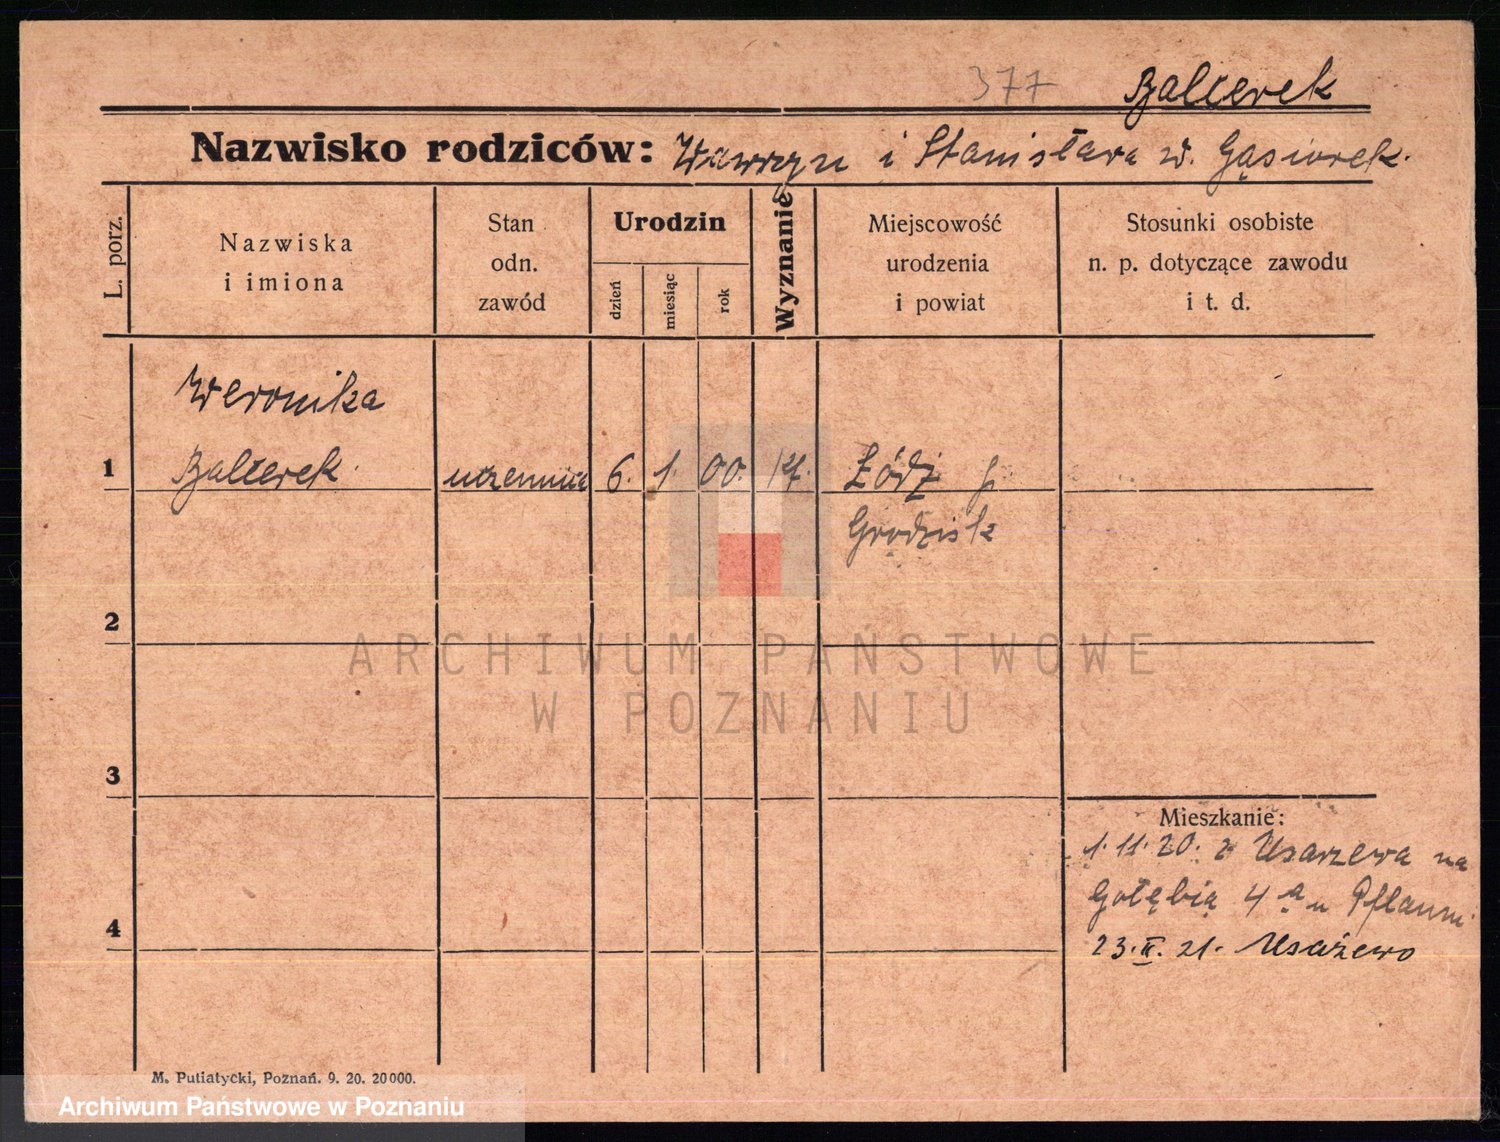 377 Balcerek
Nazwisko rodziców: Wawrzyn i Stanisława w. Gąsiorek.
L. porz.
Nazwiska
i imiona
Stan
odn.
zawód
Urodzin
dzień
miesiąc
rok
Wyznanie
Miejscowość
urodzenia
i powiat
Stosunki osobiste
n. p. dotyczące zawodu
i t. d.
Weronika
1 Balcerek uczennica 6. 1. 00. kt. Łódź p
Grodzisk
2
ARCHIWUM PAŃSTWOWE
W POZNANIU
3
Mieszkanie:
1. 11. 20. z Usarzewa na
Gołębią 4 a u Pflaum
4
23. II. 21. Usażewo
M. Putiatycki, Poznań. 9. 20. 20000.
Archiwum Państwowe w Poznaniu